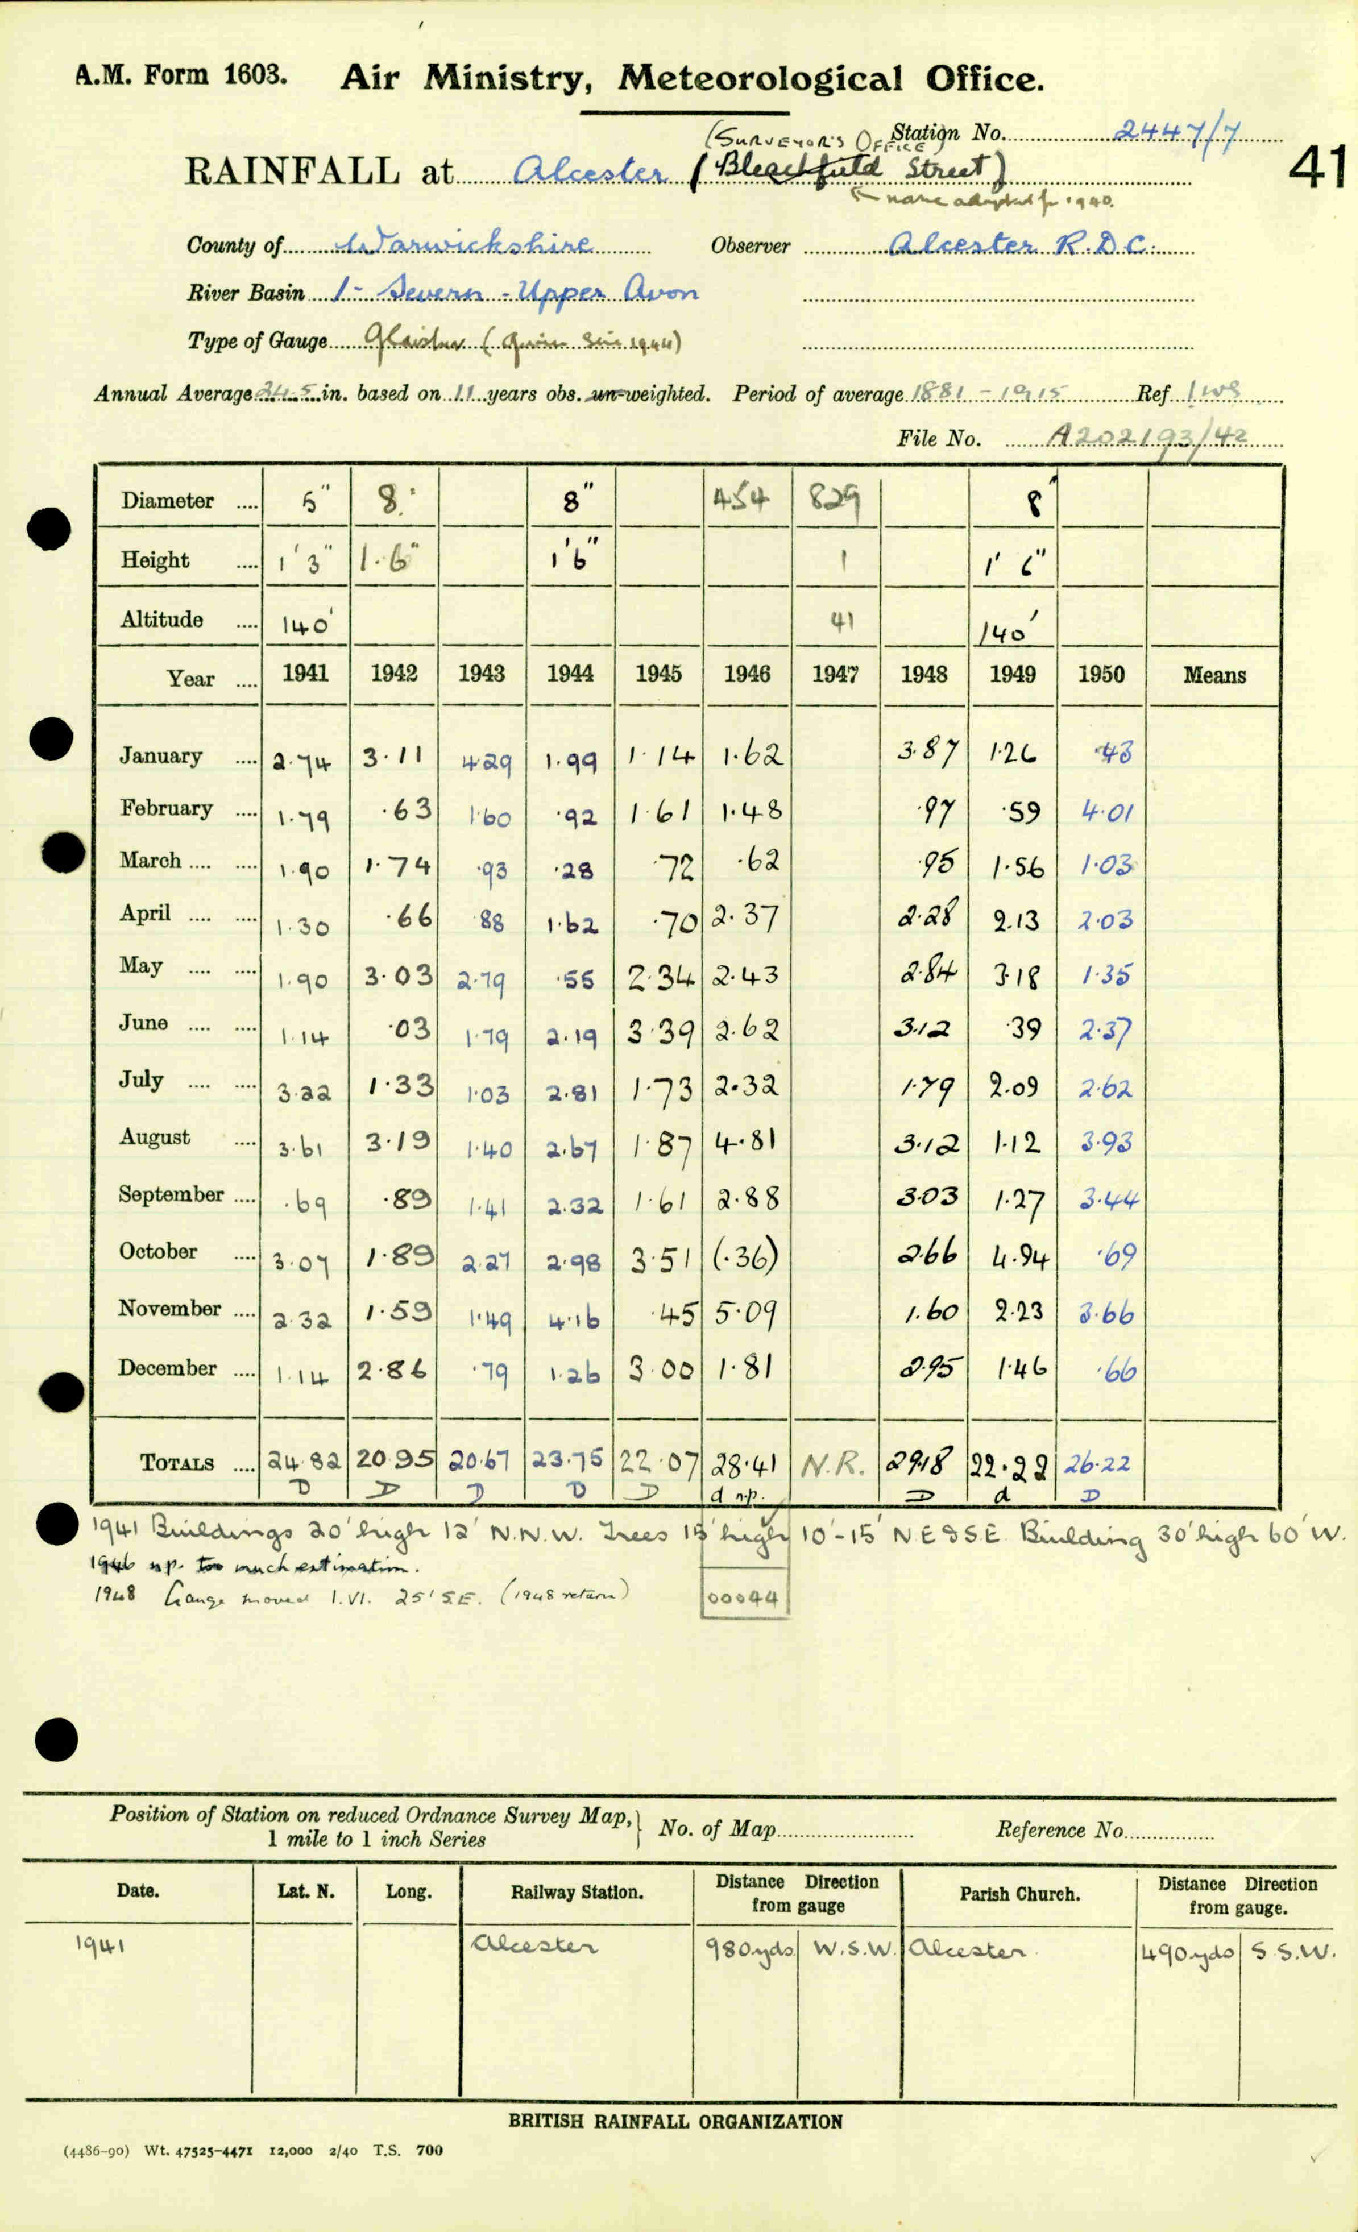 A.M. Form 1603. Air Ministry, Meteorological Office.
(SURVEYOR'S OFFICE) Station No. 2447/7
41
RAINFALL at Alcester (Bleachfield Street)
name adopted for 1940.
County of Warwickshire Observer Alcester R.D.C.
River Basin 1 - Severn - Upper Avon
Type of Gauge Glaisher ( since 1944)
Annual Average 24.5 in. based on 11 years obs. un-weighted. Period of average 1881 - 1915 Ref
File No. A202193/42
Diameter .... 5" 8" 8" 454 829 8"
Height .... 1'3" 1.6" 1'6" 1 1' 6"
Altitude .... 140' 41 140'
Year .... 1941 1942 1943 1944 1945 1946 1947 1948 1949 1950 Means
January .... 2.74 3.11 4.29 1.99 1.14 1.62 3.87 1.26 .43
February .... 1.79 .63 1.60 .92 1.61 1.48 .97 .59 4.01
March .... .... 1.90 1.74 .93 .28 .72 .62 .95 1.56 1.03
April .... .... 1.30 .66 .88 1.62 .70 2.37 2.28 2.13 2.03
May .... .... 1.90 3.03 2.79 .55 2.34 2.43 2.84 3.18 1.35
June .... .... 1.14 .03 1.79 2.19 3.39 2.62 3.12 .39 2.37
July .... .... 3.22 1.33 1.03 2.81 1.73 2.32 1.79 2.09 2.62
August .... 3.61 3.19 1.40 2.67 1.87 4.81 3.12 1.12 3.93
September .... .69 .89 1.41 2.32 1.61 2.88 3.03 1.27 3.44
October .... 3.07 1.89 2.27 2.98 3.51 (.36) 2.66 4.94 .69
November .... 2.32 1.59 1.49 4.16 .45 5.09 1.60 2.23 3.66
December .... 1.14 2.86 .79 1.26 3.00 1.81 2.95 1.46 .66
TOTALS .... 24.82 20.95 20.67 23.75 22.07 28.41 N.R. 29.18 22.22 26.22
D D D D D d n.p. D d D
1941 Buildings 20' high 12' N.N.W. Trees 15' high 10'-15' N.E & S.E. Building 30' high 60' W.
1946 n.p. too much estimation.
1948 Gauge moved 1.VI. 25' S.E. (1948 return) 00044
Position of Station on reduced Ordnance Survey Map, 1 mile to 1 inch Series } No. of Map Reference No.
Date. Lat. N. Long. Railway Station. Distance from gauge Direction Parish Church. Distance from gauge. Direction
1941 Alcester 980 yds W.S.W. Alcester 490 yds S.S.W.
BRITISH RAINFALL ORGANIZATION
(4486-90) Wt. 47525-4471 12,000 2/40 T.S. 700